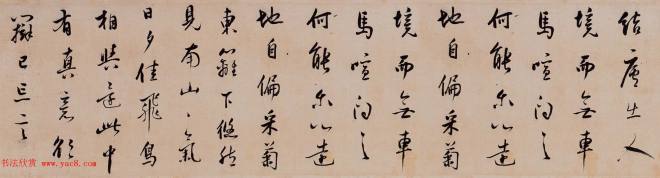 結廬在人
境而無車
馬喧问君
何能尔心遠
地自偏采菊
境而無車
馬喧问君
何能尔心遠
地自偏采菊
東籬下悠然
見南山〻氣
日夕佳飛鳥
相與還此中
有真意欲
辯已忘言
书法欣赏
www.yac8.com